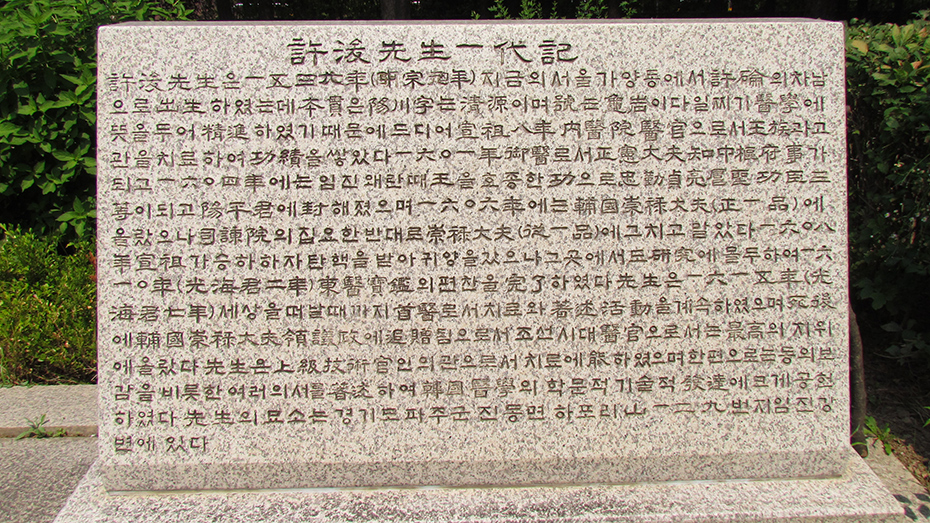 許浚先生一代記
許浚先生은 一五三九年(中宗卅四年) 지금의 서울 가양동에서 許碖의 차남
으로 出生하였는데 本貫은 陽川 字는 淸源이며 號는 龜岩이다 일찌기 醫學에
뜻을 두어 精進하였기 때문에 드디어 宣祖八年 內醫院 醫官으로서 王族과 고
관을 치료하여 功績을 쌓았다 一六○一年 御醫로서 正憲大夫知中樞府事가
되고 一六○四年에는 임진왜란때 王을 호종한 功으로 忠勤貞亮扈聖功臣 三
等이 되고 陽平君에 封해졌으며 一六○六年에는 輔國崇祿大夫(正一品)에
올랐으나 司諫院의 집요한 반대로 崇祿大夫(從一品)에 그치고 말았다 一六○八
年 宣祖가 승하하자 탄핵을 받아 귀양을 갔으나 그곳에서도 硏究에 몰두하여 一六
一○年(光海君二年) 東醫寶鑑의 편찬을 完了하였다 先生은 一六一五年(光
海君七年) 세상을 떠날 때까지 首醫로서 치료와 著述活動을 계속하였으며 死後
에 輔國崇祿大夫領議政에 追贈됨으로서 조선시대 醫官으로서는 最高의 지위
에 올랐다 先生은 上級技術官인 의관으로서 치료에 能하였으며 한편으로는 동의보
감을 비롯한 여러 의서를 著述하여 韓國醫學의 학문적 기술적 發達에 크게 공헌
하였다 先生의 묘소는 경기도 파주군 진동면 하포리 山一二九번지 임진강
변에 있다